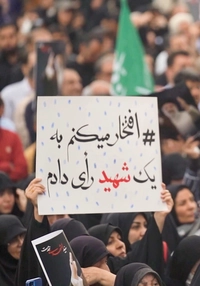 #افتخار میکنم به
یک شهید رأی دادم